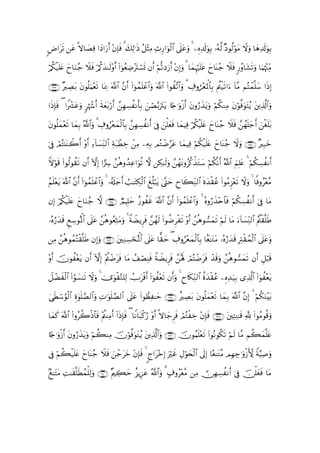 بِوَلَدِهَا وَلَا مَوْلُودٌ لَّهُۥ بِوَلَدِهِۦ ۚ وَعَلَى ٱلْوَارِثِ مِثْلُ ذَٰلِكَ ۗ فَإِنْ أَرَادَا فِصَالًا عَن تَرَاضٍ
مِّنْهُمَا وَتَشَاوُرٍ فَلَا جُنَاحَ عَلَيْهِمَا ۗ وَإِنْ أَرَدتُّمْ أَن تَسْتَرْضِعُوٓا۟ أَوْلَٰدَكُمْ فَلَا جُنَاحَ عَلَيْكُمْ
إِذَا سَلَّمْتُم مَّآ ءَاتَيْتُم بِٱلْمَعْرُوفِ ۗ وَٱتَّقُوا۟ ٱللَّهَ وَٱعْلَمُوٓا۟ أَنَّ ٱللَّهَ بِمَا تَعْمَلُونَ بَصِيرٌ
وَٱلَّذِينَ يُتَوَفَّوْنَ مِنكُمْ وَيَذَرُونَ أَزْوَٰجًا يَتَرَبَّصْنَ بِأَنفُسِهِنَّ أَرْبَعَةَ أَشْهُرٍ وَعَشْرًا ۖ فَإِذَا
بَلَغْنَ أَجَلَهُنَّ فَلَا جُنَاحَ عَلَيْكُمْ فِيمَا فَعَلْنَ فِىٓ أَنفُسِهِنَّ بِٱلْمَعْرُوفِ ۗ وَٱللَّهُ بِمَا تَعْمَلُونَ
خَبِيرٌ وَلَا جُنَاحَ عَلَيْكُمْ فِيمَا عَرَّضْتُم بِهِۦ مِنْ خِطْبَةِ ٱلنِّسَآءِ أَوْ أَكْنَنتُمْ فِىٓ
أَنفُسِكُمْ ۚ عَلِمَ ٱللَّهُ أَنَّكُمْ سَتَذْكُرُونَهُنَّ وَلَٰكِن لَّا تُوَاعِدُوهُنَّ سِرًّا إِلَّآ أَن تَقُولُوا۟ قَوْلًا
مَّعْرُوفًا ۚ وَلَا تَعْزِمُوا۟ عُقْدَةَ ٱلنِّكَاحِ حَتَّىٰ يَبْلُغَ ٱلْكِتَٰبُ أَجَلَهُۥ ۚ وَٱعْلَمُوٓا۟ أَنَّ ٱللَّهَ يَعْلَمُ
مَا فِىٓ أَنفُسِكُمْ فَٱحْذَرُوهُ ۚ وَٱعْلَمُوٓا۟ أَنَّ ٱللَّهَ غَفُورٌ حَلِيمٌ لَّا جُنَاحَ عَلَيْكُمْ إِن
طَلَّقْتُمُ ٱلنِّسَآءَ مَا لَمْ تَمَسُّوهُنَّ أَوْ تَفْرِضُوا۟ لَهُنَّ فَرِيضَةً ۚ وَمَتِّعُوهُنَّ عَلَى ٱلْمُوسِعِ قَدَرُهُۥ
وَعَلَى ٱلْمُقْتِرِ قَدَرُهُۥ مَتَٰعًۢا بِٱلْمَعْرُوفِ ۖ حَقًّا عَلَى ٱلْمُحْسِنِينَ وَإِن طَلَّقْتُمُوهُنَّ مِن
قَبْلِ أَن تَمَسُّوهُنَّ وَقَدْ فَرَضْتُمْ لَهُنَّ فَرِيضَةً فَنِصْفُ مَا فَرَضْتُمْ إِلَّآ أَن يَعْفُونَ أَوْ
يَعْفُوَا۟ ٱلَّذِى بِيَدِهِۦ عُقْدَةُ ٱلنِّكَاحِ ۚ وَأَن تَعْفُوٓا۟ أَقْرَبُ لِلتَّقْوَىٰ ۚ وَلَا تَنسَوُا۟ ٱلْفَضْلَ
بَيْنَكُمْ ۚ إِنَّ ٱللَّهَ بِمَا تَعْمَلُونَ بَصِيرٌ حَٰفِظُوا۟ عَلَى ٱلصَّلَوَٰتِ وَٱلصَّلَوٰةِ ٱلْوُسْطَىٰ
وَقُومُوا۟ لِلَّهِ قَٰنِتِينَ فَإِنْ خِفْتُمْ فَرِجَالًا أَوْ رُكْبَانًا ۖ فَإِذَآ أَمِنتُمْ فَٱذْكُرُوا۟ ٱللَّهَ كَمَا
عَلَّمَكُم مَّا لَمْ تَكُونُوا۟ تَعْلَمُونَ وَٱلَّذِينَ يُتَوَفَّوْنَ مِنكُمْ وَيَذَرُونَ أَزْوَٰجًا
وَصِيَّةً لِّأَزْوَٰجِهِم مَّتَٰعًا إِلَى ٱلْحَوْلِ غَيْرَ إِخْرَاجٍ ۚ فَإِنْ خَرَجْنَ فَلَا جُنَاحَ عَلَيْكُمْ فِى
مَا فَعَلْنَ فِىٓ أَنفُسِهِنَّ مِن مَّعْرُوفٍ ۗ وَٱللَّهُ عَزِيزٌ حَكِيمٌ وَلِلْمُطَلَّقَٰتِ مَتَٰعٌۢ